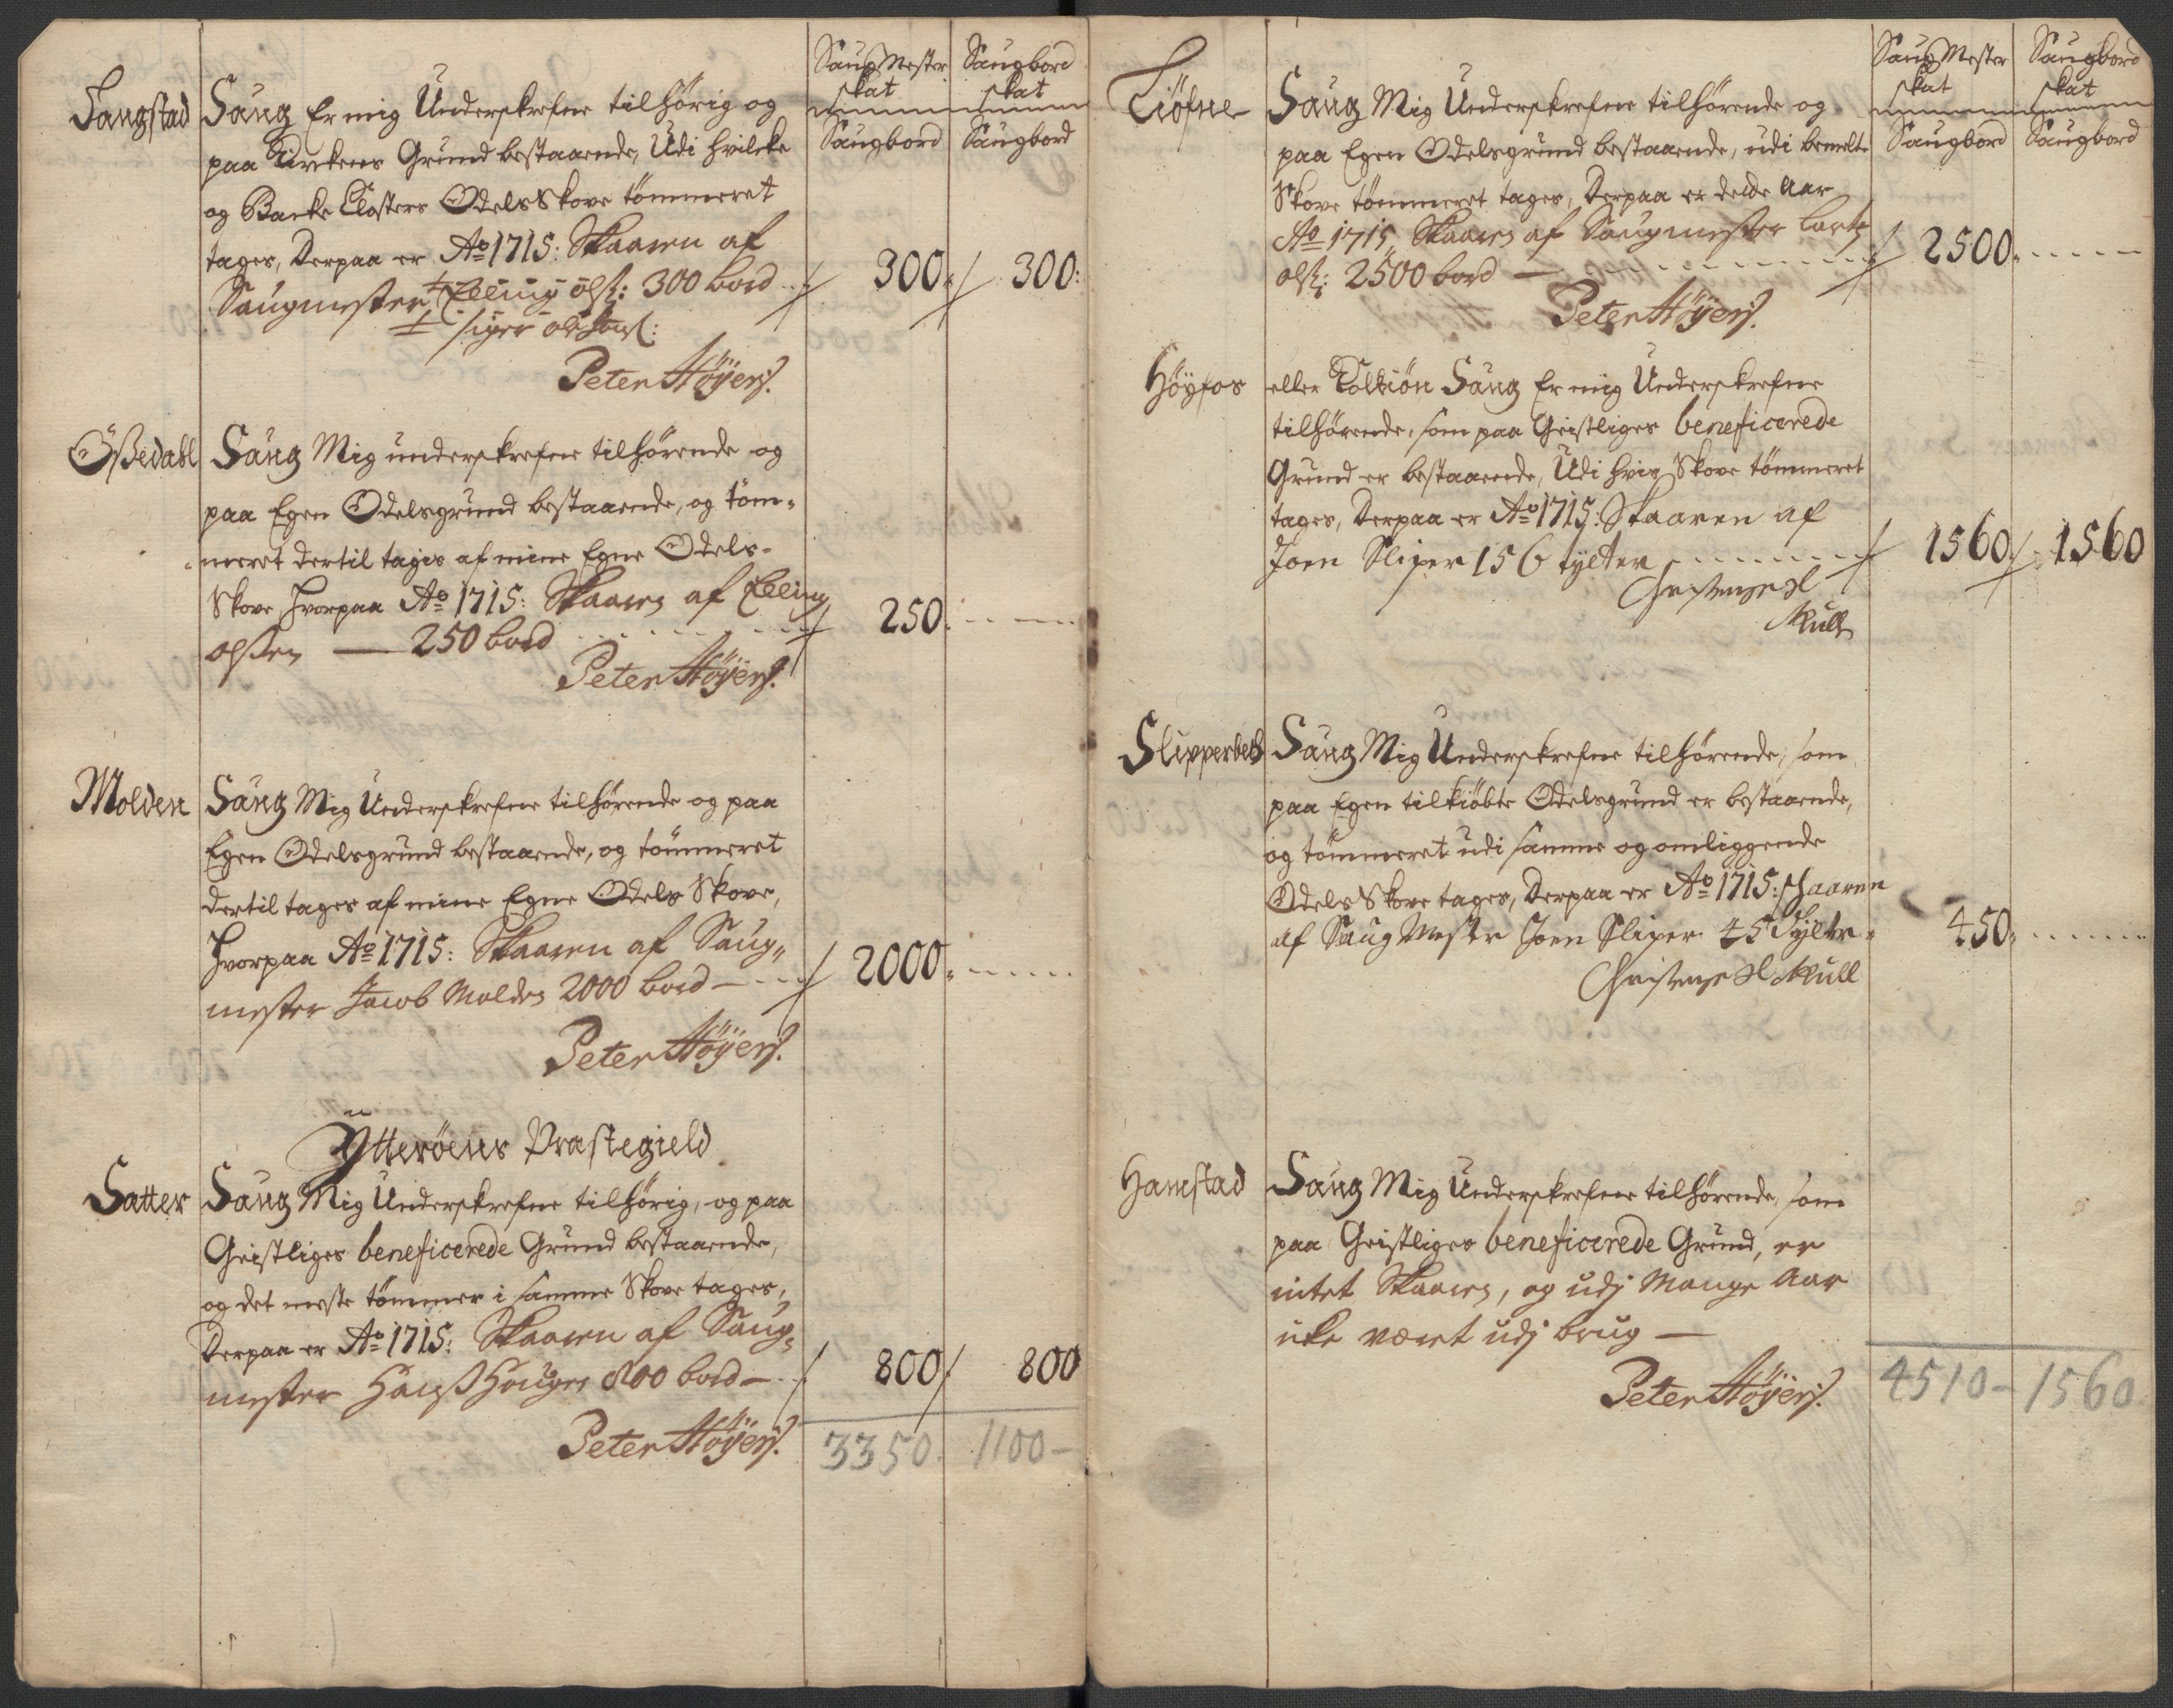 SaugMester Saugbord
skat skat
Saugbord Saugbord
Sangstad Saug Er mig Underskrefne tilhørig og
paa Kirckens Grund bestaaende, Udi hvilcke
og Backe Closters Odels Skove tømmeret
tages, Derpaa er Ao 1715: Skaaren af
Saugmester Elling olß: 300 bord 300 300
siger olß
Peter Höyers.
Ößedahl Saug Mig underskrefne tilhørende og
paa Egen Odelsgrund bestaaende, og tøm-
meret dertil tages af mine Egne Odels-
Skove, hvorpaa Ao 1715: Skaaren af Elling
olßen — 250 bord 250
Peter Höyers.
Molden Saug Mig Underskrefne tilhørende og paa
Egen Odelsgrund bestaaende, og tømmeret
dertil tages af mine Egne Odels Skove,
hvorpaa Ao 1715: Skaaren af Saug-
mester Jacob Molden 2000 bord — 2000
Peter Höyers.
Ytterøens Præstegield
Satter Saug Mig Underskrefne tilhørig, og paa
Geistliges beneficerede Grund bestaaende,
og det meste tømmer i samme Skove tages,
Derpaa er Ao 1715: Skaaren af Saug-
mester Hanß Hougen 800 bord — 800 800
Peter Höyers.
3350 1100 —
SaugMester Saugbord
skat skat
Saugbord Saugbord
Tiøfne Saug Mig Underskrefne tilhørende og
paa Egen Odelsgrund bestaaende, udi bemelte
Skove tømmeret tages, Derpaa er dette Aar
Ao 1715 Skaaren af Saugmester Lars
olß: 2500 bord — 2500
Peter Höyers.
Höyfos eller Koltiön Saug Er mig Underskrefne
tilhørende, som paa Geistliges beneficerede
Grund er bestaaende, Udi hvis Skove tømmeret
tages, Derpaa er Ao 1715: Skaaren af
Joen Sliper 156 tylter 1560 1560
Mull
Slipperbech Saug Mig Underskrefne tilhørende, som
paa Egen tilkiøbte Odelsgrund er bestaaende,
og tømmeret udi samme og omliggende
Odels Skove tages, Derpaa er Ao 1715: schaaren
af Saug Mester Joen Sliper 45 Tylter 450
Mull
Hamstad Saug Mig Underskrefne tilhørende, som
paa Geistliges beneficerede Grund, er
intet Skaaren, og udj Mange Aar
icke været udj brug —
Peter Höyers.
4510 - 1560